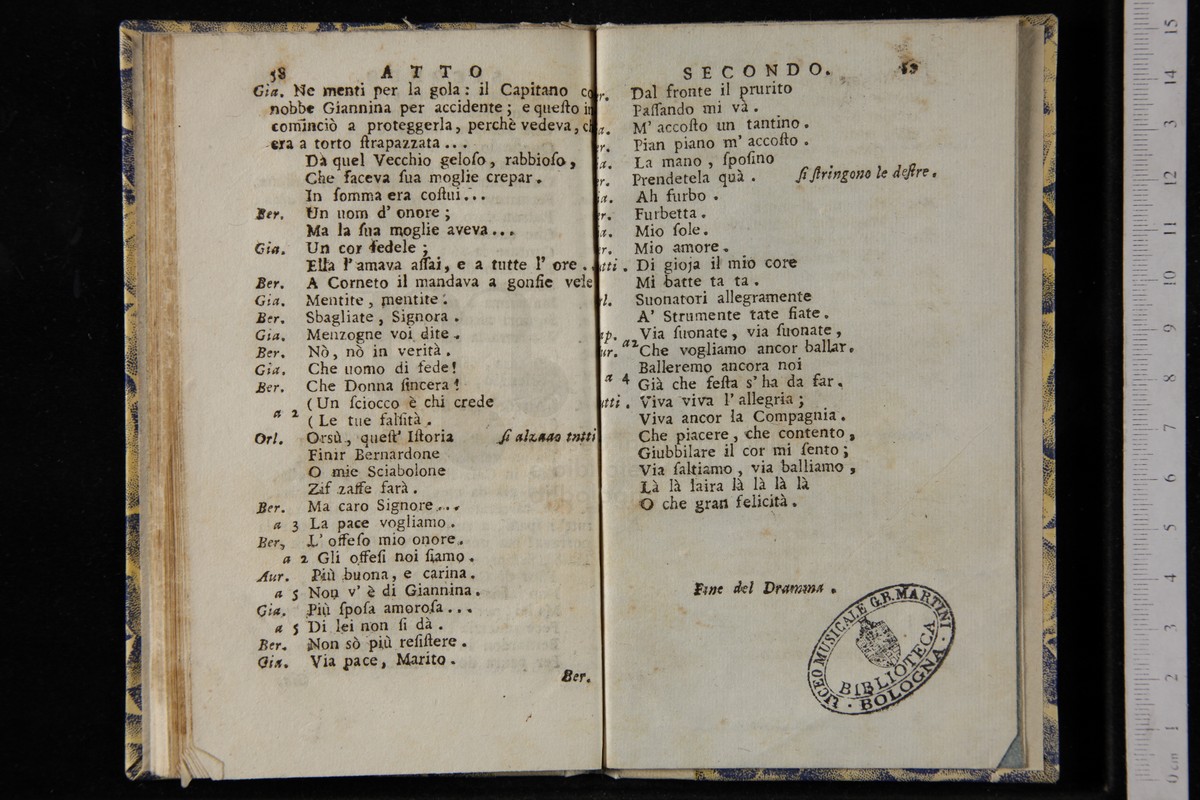 58 ATTO
Gia. Ne menti per la gola: il Capitano co
nobbe Giannina per accidente; e queſto in
cominciò a proteggerla, perchè vedeva, ch
era a torto ſtrapazzata ...
Dà quel Vecchio geloſo, rabbioſo,
Che faceva ſua moglie crepar.
In ſomma era coſtui...
Ber. Un uom d' onore;
Ma la ſua moglie aveva...
Gia. Un cor fedele;
Ella l'amava aſſai, e a tutte l' ore .
Ber. A Corneto il mandava a gonfie vele
Gia. Mentite, mentite.
Ber. Sbagliate, Signora.
Gia. Menzogne voi dite.
Ber. Nò, nò in verità.
Gia. Che uomo di fede!
Ber. Che Donna ſincera!
(Un ſciocco è chi crede
a 2
(Le tue falſità.
Orl. Orsù, queſt' Iſtoria ſi alzaao tutti
Finir Bernardone
O mie Sciabolone
Zif zaffe farà.
Ber. Ma caro Signore...
a 3 La pace vogliamo.
Ber, L' offeſo mio onore.
a 2 Gli offeſi noi ſiamo.
Aur. Più buona, e carina.
a 5 Non v' è di Giannina.
Gia. Più ſpoſa amoroſa...
a 5 Di lei non ſi dà.
Ber. Non sò più reſiſtere.
Gia. Via pace, Marito.
Ber.
SECONDO. 59
r. Dal fronte il prurito
Paſſando mi và.
a. M' accoſto un tantino.
r. Pian piano m' accoſto.
a. La mano, ſpoſino
r. Prendetela quà. ſi ſtringono le deſtre.
ia. Ah furbo.
r. Furbetta.
a. Mio ſole.
r. Mio amore.
tti. Di gioja il mio core
Mi batte ta ta.
l. Suonatori allegramente
A' Strumente tate fiate.
ap. Via ſuonate, via ſuonate,
a2
ur. Che vogliamo ancor ballar.
Balleremo ancora noi
a 4 Già che feſta s' ha da far.
utti. Viva viva l' allegria;
Viva ancor la Compagnia.
Che piacere, che contento,
Giubbilare il cor mi ſento;
Via ſaltiamo, via balliamo,
Là là laira là là là là
O che gran felicità.
Fine del Dramma.
LICEO MUSICALE G.B. MARTINI
BIBLIOTECA
BOLOGNA
15
14
13
12
11
10
9
8
7
6
5
4
3
2
1
0 cm